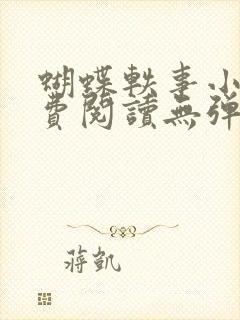 蝴蝶軼事小
費閱讀無彈
蔣凱